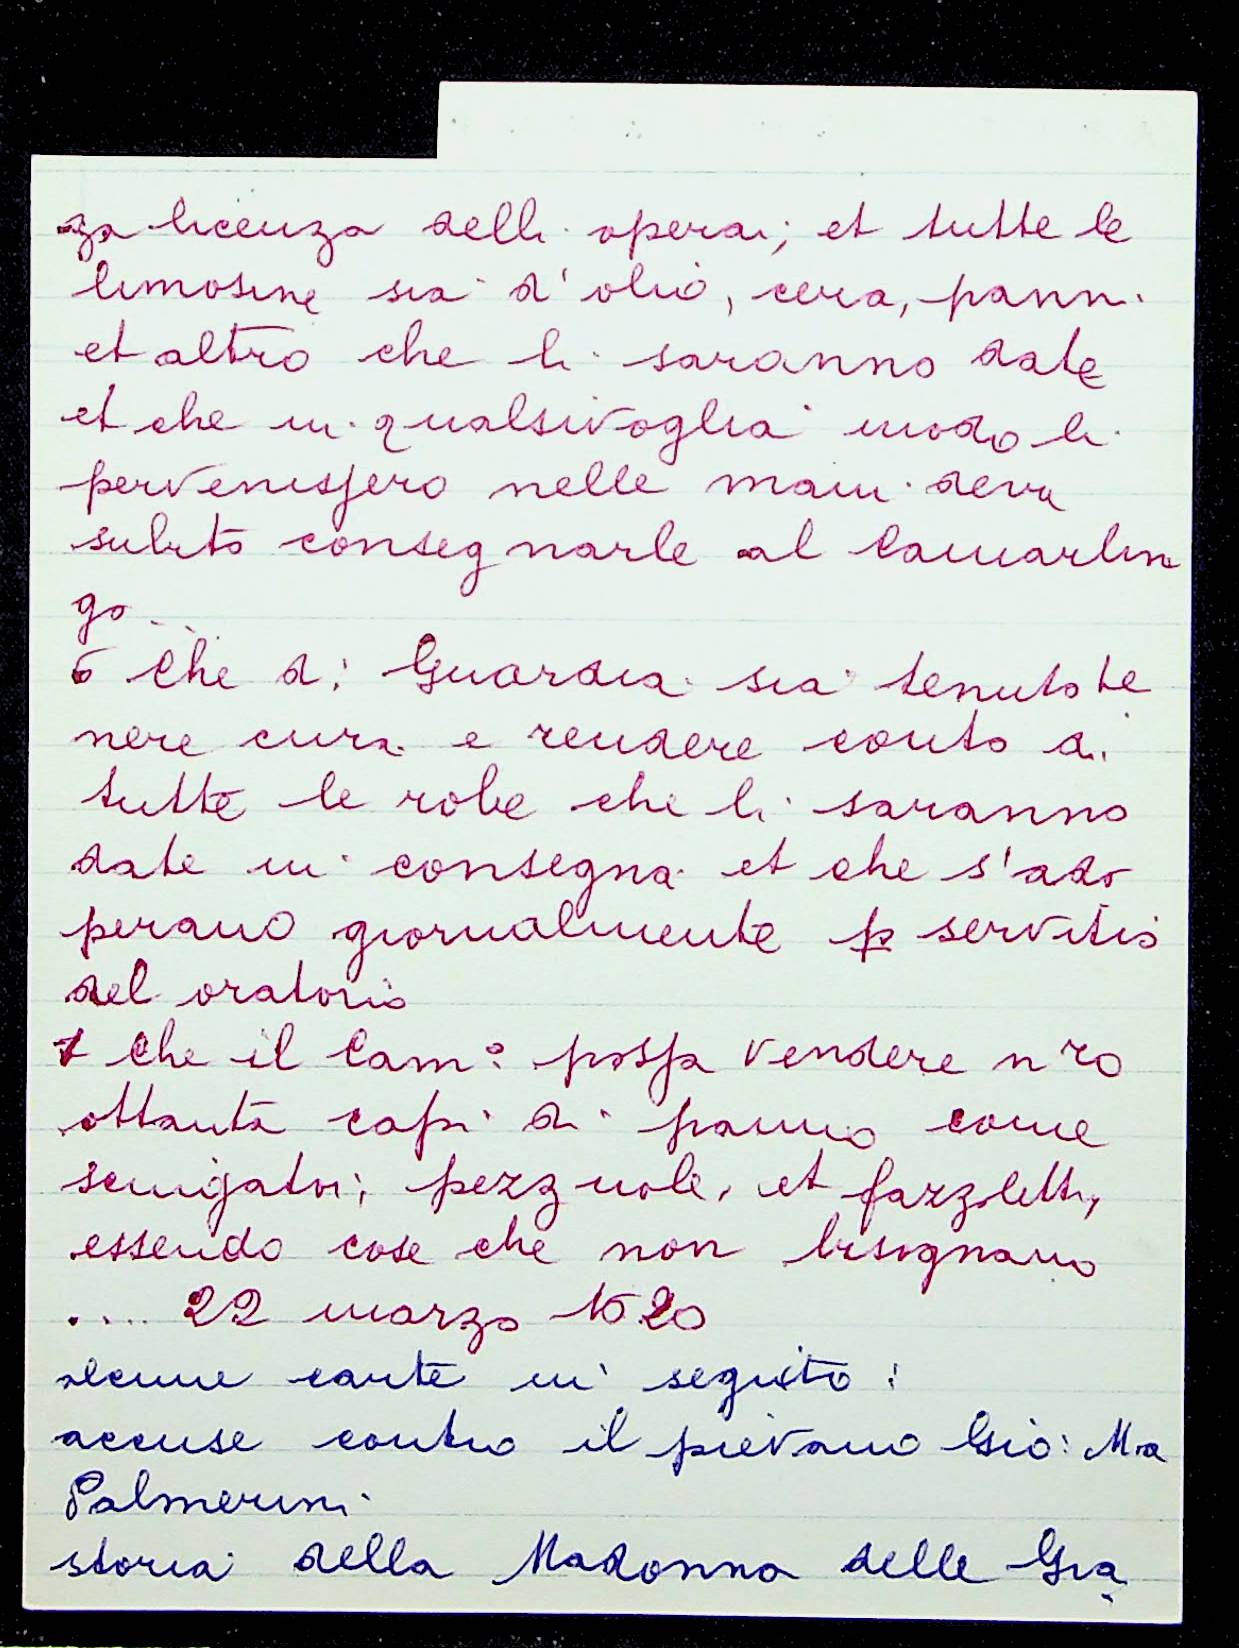 za licenza delli operai; et tutte le
limosine sia d'olio, cera, panni
et altro che li saranno date
et che in qualsivoglia modo li
pervenissero nelle mani deva
subito consegnarle al Camarlin
go ..
6 Che di Guardia sia tenuto te
nere cura e rendere conto di
tutte le robe che li saranno
date in consegna et che s'ado
perano giornalmente p servitio
del oratorio
7 Che il Cam:º possa vendere nro
ottanta capi di panno come
sciugatoi; pezzuole, et fazzoletti,
essendo cose che non bisognano
.... 22 marzo 1620
alcune carte in seguito:
accuse contro il pievano Gio: Mra
Palmerini
storia della Madonna delle Gra